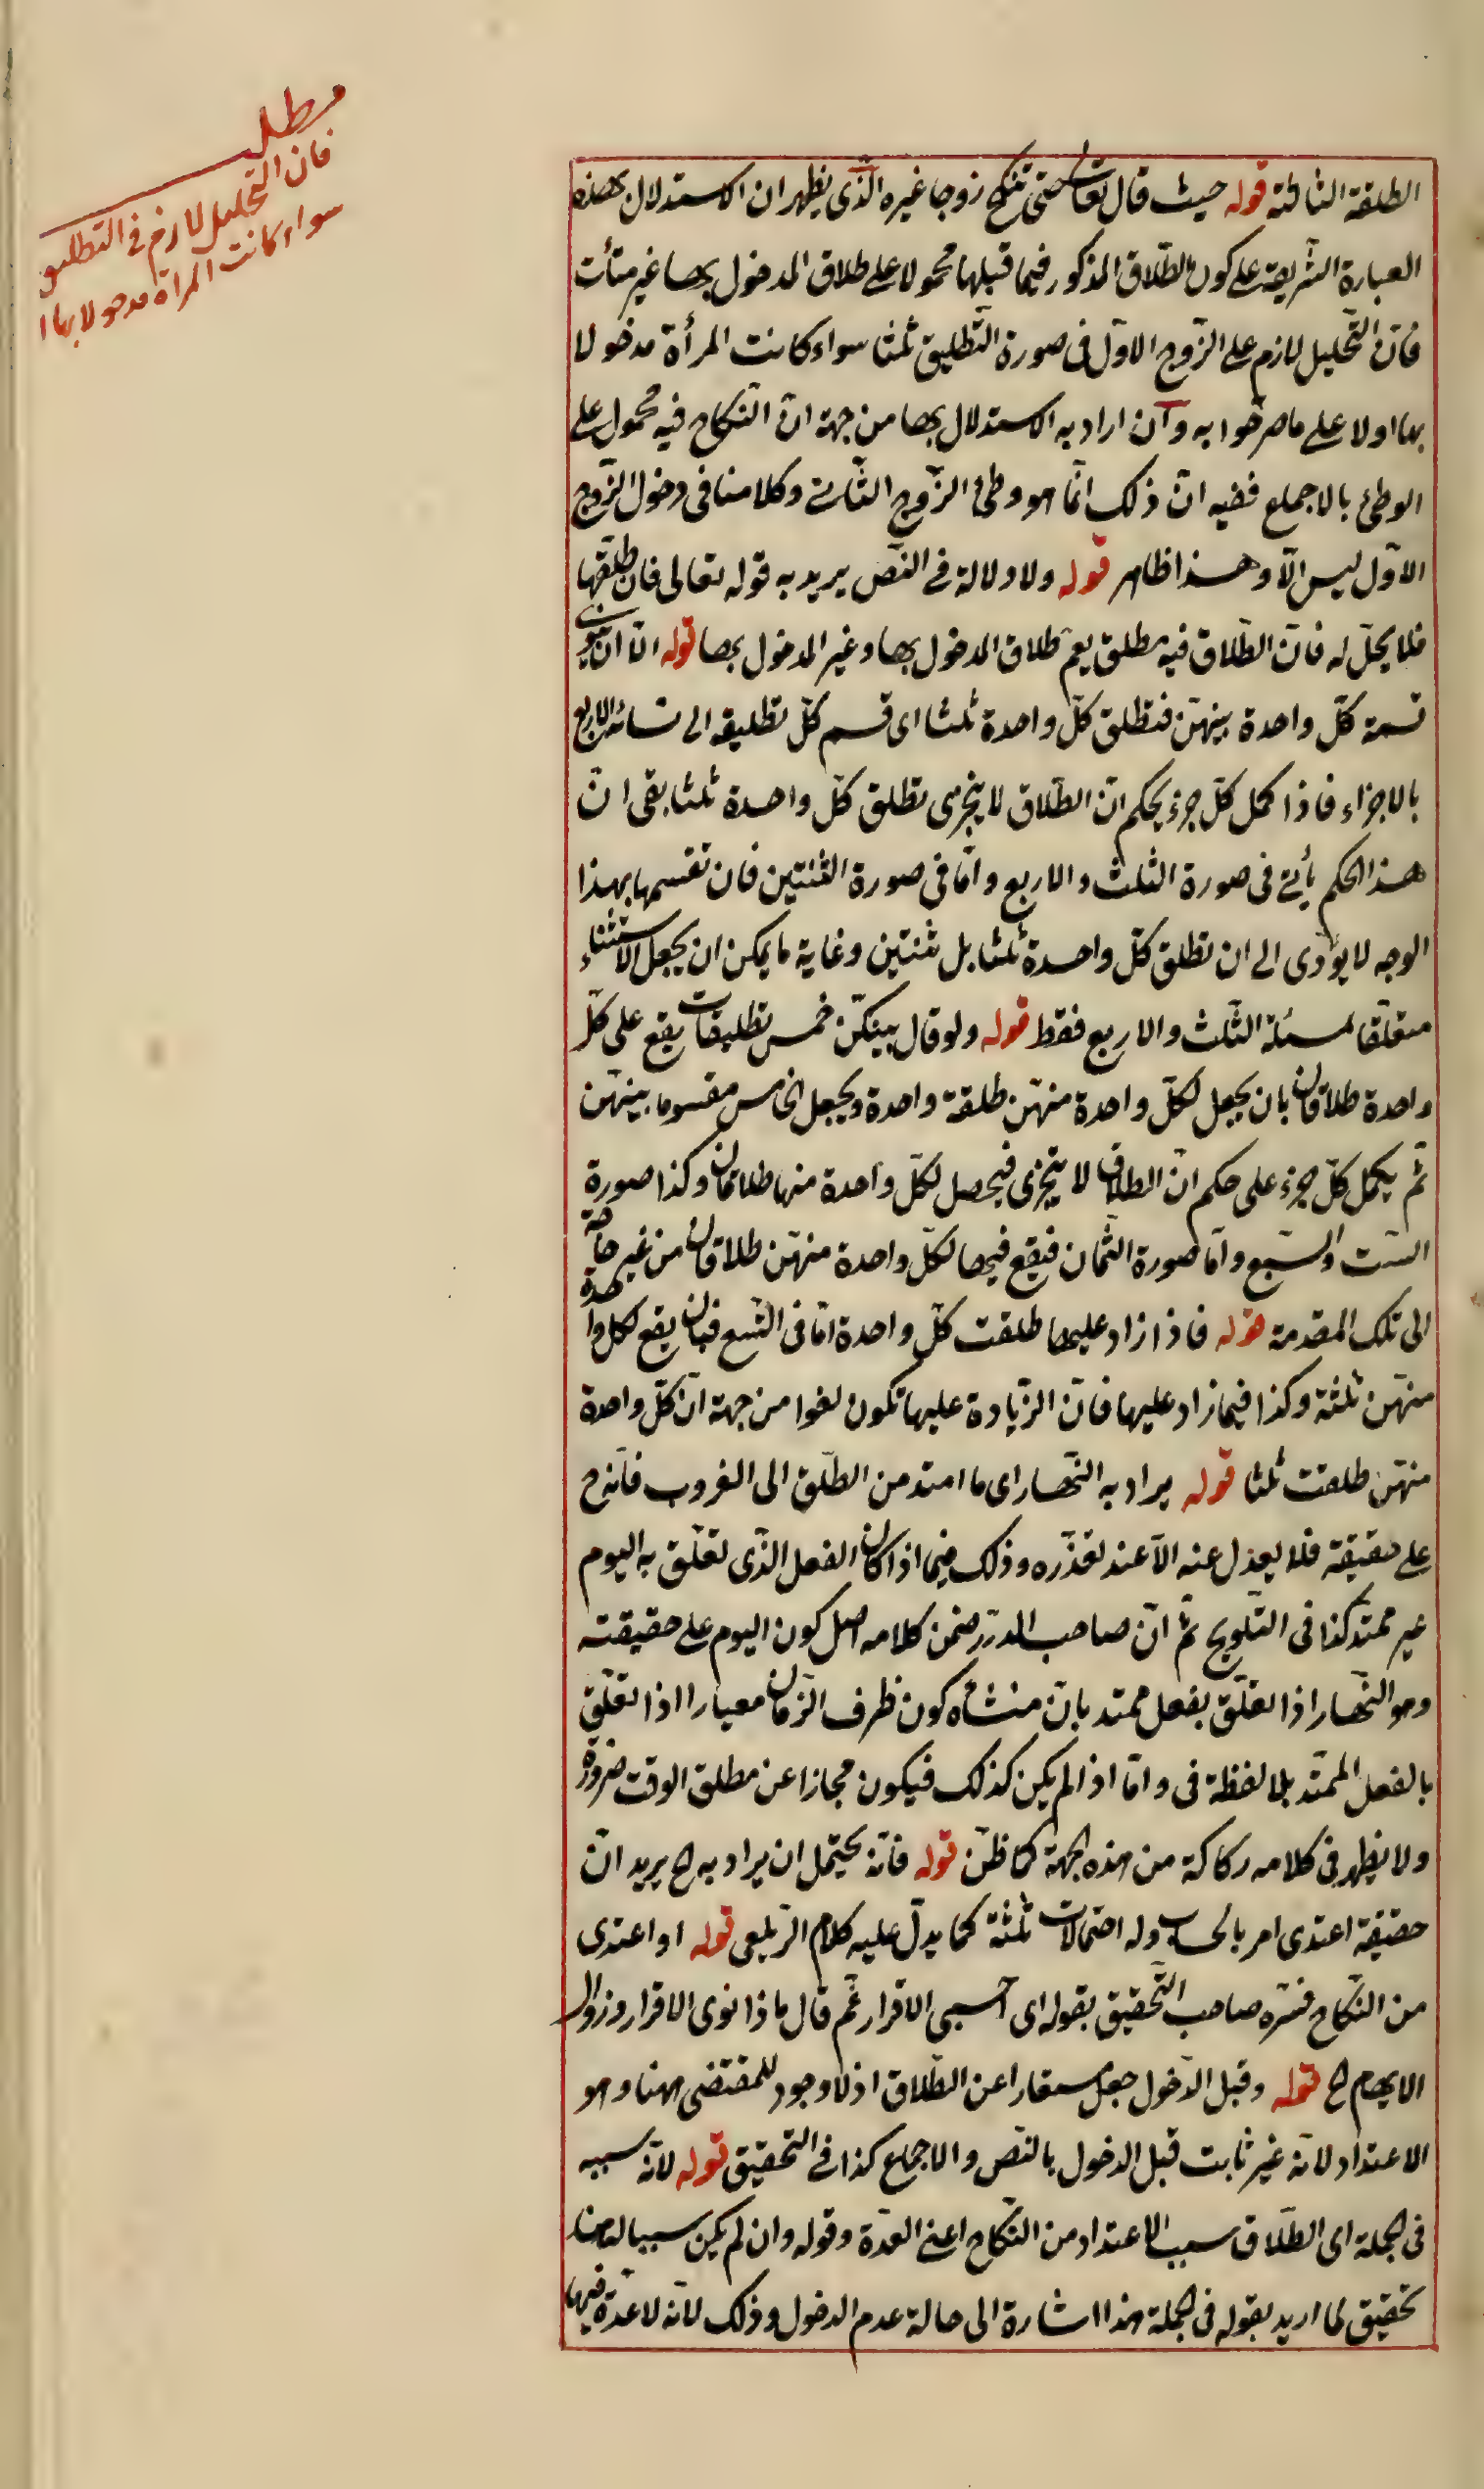 مطلب
فان التحليل لازم في التطليق
سواء كانت المرأة مدخولا بها ا
الطلقة الثالثة قوله حيث قال تعالى حتى تنكح زوجا غيره الذى يظهر ان الاستدلال بهذه
العبارة الشريفة على كون الطلاق المذكور فيما قبلها محمولا على طلاق المدخول بها غير متأت
فان التحليل لازم على الزوج الاول فى صورة التطليق ثلثا سواء كانت المرأة مدخولا
بها اولا على ما صرحوا به وان اراد به الاستدلال بها من جهة ان النكاح فيه محمول على
الوطئ بالاجماع ففيه ان ذلك انما هو وطئ الزوج الثانى وكلامنا فى دخول الزوج
الاول ليس الا وهذا ظاهر قوله ولا دلالة فى النص يريد به قوله تعالى فان طلقها
فلا يحل له فان الطلاق فيه مطلق يعم طلاق المدخول بها وغير المدخول بها قوله الا ان ينوى
قسمة كل واحدة بينهن فتطلق كل واحدة ثلثا اى قسم كل تطليقه الى نسائه الاربع
بالاجزاء فاذا كمل كل جزء بحكم ان الطلاق لا يتجزى تطلق كل واحدة ثلثا بقى ان
هذا الحكم يأتى فى صورة الثلث والاربع واما فى صورة الثنتين فان تقسمها بهذا
الوجه لا يؤدى الى ان تطلق كل واحدة ثلثا بل ثنتين وغاية ما يمكن ان يجعل الاستثناء
متعلقا لمسئلة الثلث والاربع فقط قوله ولو قال بينكن خمس تطليقات يقع على كل
واحدة طلاقان بان يجعل لكل واحدة منهن طلقة واحدة ويجعل الخامس مقسوما بينهن
ثم يكمل كل جزء على حكم ان الطلاق لا يتجزى فيحصل لكل واحدة منها طلاقان وكذا صورة
الست والسبع واما صورة الثمان فيقع فيها لكل واحدة منهن طلاقان من غير حاجة
الى تلك المقدمة قوله فاذا زاد عليها طلقت كل واحدة اما فى التسع فبان يقع لكل واحدة
منهن ثلثة وكذا فيما زاد عليها فان الزيادة عليها تكون لغوا من جهة ان كل واحدة
منهن طلقت ثلثا قوله يراد به النهار اى ما امتد من الطلق الى الغروب فانه ح
على حقيقة فلا يعدل عنه الا عند تعذره وذلك فيما اذا كان الفعل الذى تعلق به اليوم
غير ممتد كذا فى التلويح ثم ان صاحب الدرر ضمن كلامه اصل كون اليوم على حقيقته
وهو النهار اذا تعلق بفعل ممتد بان منشأه كون ظرف الزمان معيارا اذا تعلق
بالفعل الممتد بلا لفظة فى واما اذا لم يكن كذلك فيكون مجازا عن مطلق الوقت ضرورة
ولا يظهر فى كلامه ركاكة من هذه الجهة كما ظن قوله فانه يحتمل ان يراد به الخ يريد ان
حقيقة اعتدى امر بالحساب وله احتمالات ثلثة كما يدل عليه كلام الزيلعى قوله او اعتدى
من النكاح فسره صاحب التحقيق بقوله اى احسبى الاقرار ثم قال ماذا نوى الاقرار وزوال
الابهام الخ قوله وقبل الدخول جعل مستعارا عن الطلاق اذ لا وجود للمقتضى ههنا وهو
الاعتداد لانه غير ثابت قبل الدخول بالنص والاجماع كذا فى التحقيق قوله لانه سببه
فى الجملة اى الطلاق سبب الاعتداد من النكاح اعنى العدة وقوله وان لم يكن سببا له هنا
تحقيق لما اريد بقوله فى الجملة هذا اشارة الى حالة عدم الدخول وذلك لانه لا عدة فيها